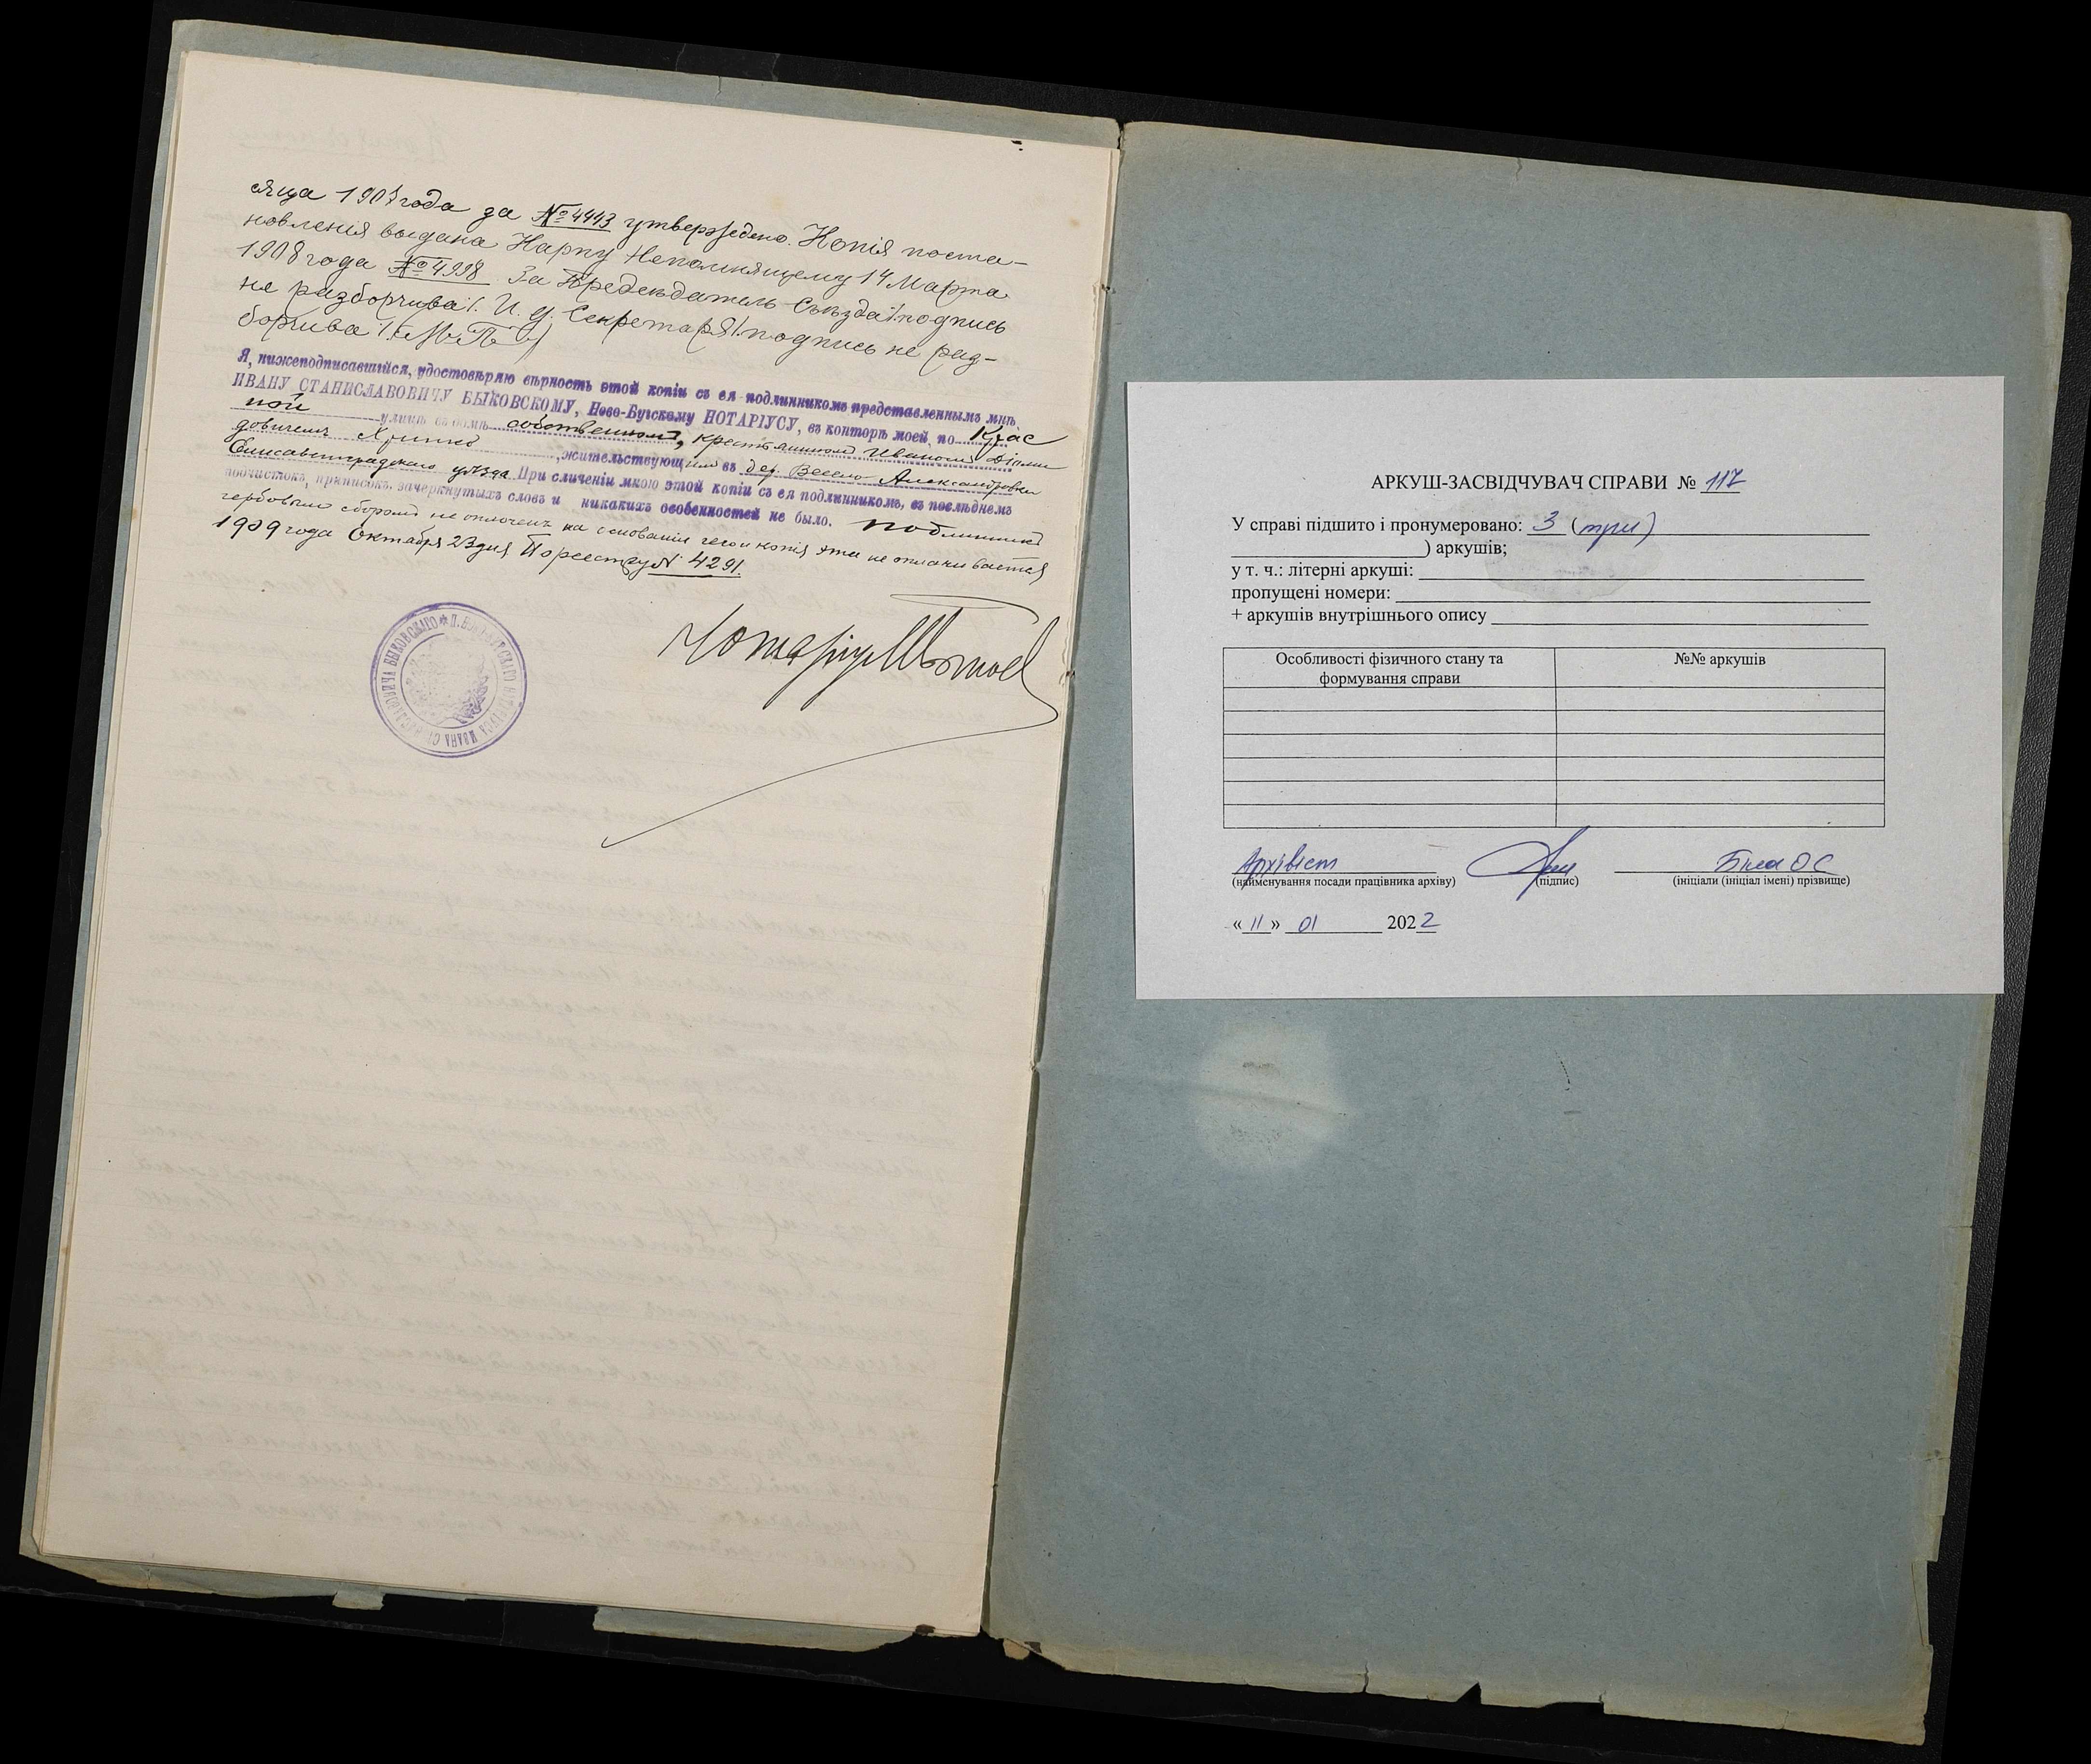 сяца 1907 года за № 4443 утверждено. Копія поста-
новленія выдана Карпу Непомнящему 14 Марта
1908 года № 4998 За Предсѣдатель Съѣзда /подпись
не разборчива/. И. д. Секретаря /подпись не раз-
борчива/. (М. П.)
Я, нижеподписавшійся, удостовѣряю вѣрность этой копіи съ ея подлинникомъ представленнымъ мнѣ
ИВАНУ СТАНИСЛАВОВИЧУ БЫКОВСКОМУ, Ново-Бугскому НОТАРІУСУ, въ конторѣ моей, по Крас
ной улицѣ въ домѣ собственномъ, крестьяниномъ Иваномъ
довичемъ, жительствующимъ въ дер. Весело Александровки
Елисаветградскаго уѣзда При сличеніи мною этой копіи съ ея подлинникомъ, въ послѣднемъ
почистокъ, приписокъ, зачеркнутыхъ словъ и никакихъ особенностей не было. Подлинникъ
гербовымъ сборомъ не оплоченъ на основаніи чего и копія эта не оплачивается
1909 года Октября 23 дня По реестру № 4291.
Нотаріусъ
НОТАРІУСА ИВАНА СТАНИСЛАВОВИЧА БЫКОВСКАГО
АРКУШ-ЗАСВІДЧУВАЧ СПРАВИ № 117
У справі підшито і пронумеровано: 3 (три)
) аркушів;
у т. ч.: літерні аркуші:
пропущені номери:
+ аркушів внутрішнього опису
Особливості фізичного стану та №№ аркушів
формування справи
Архівіст Біла О С
(найменування посади працівника архіву) (підпис) (ініціали (ініціал імені) прізвище)
« 11 » 01 2022